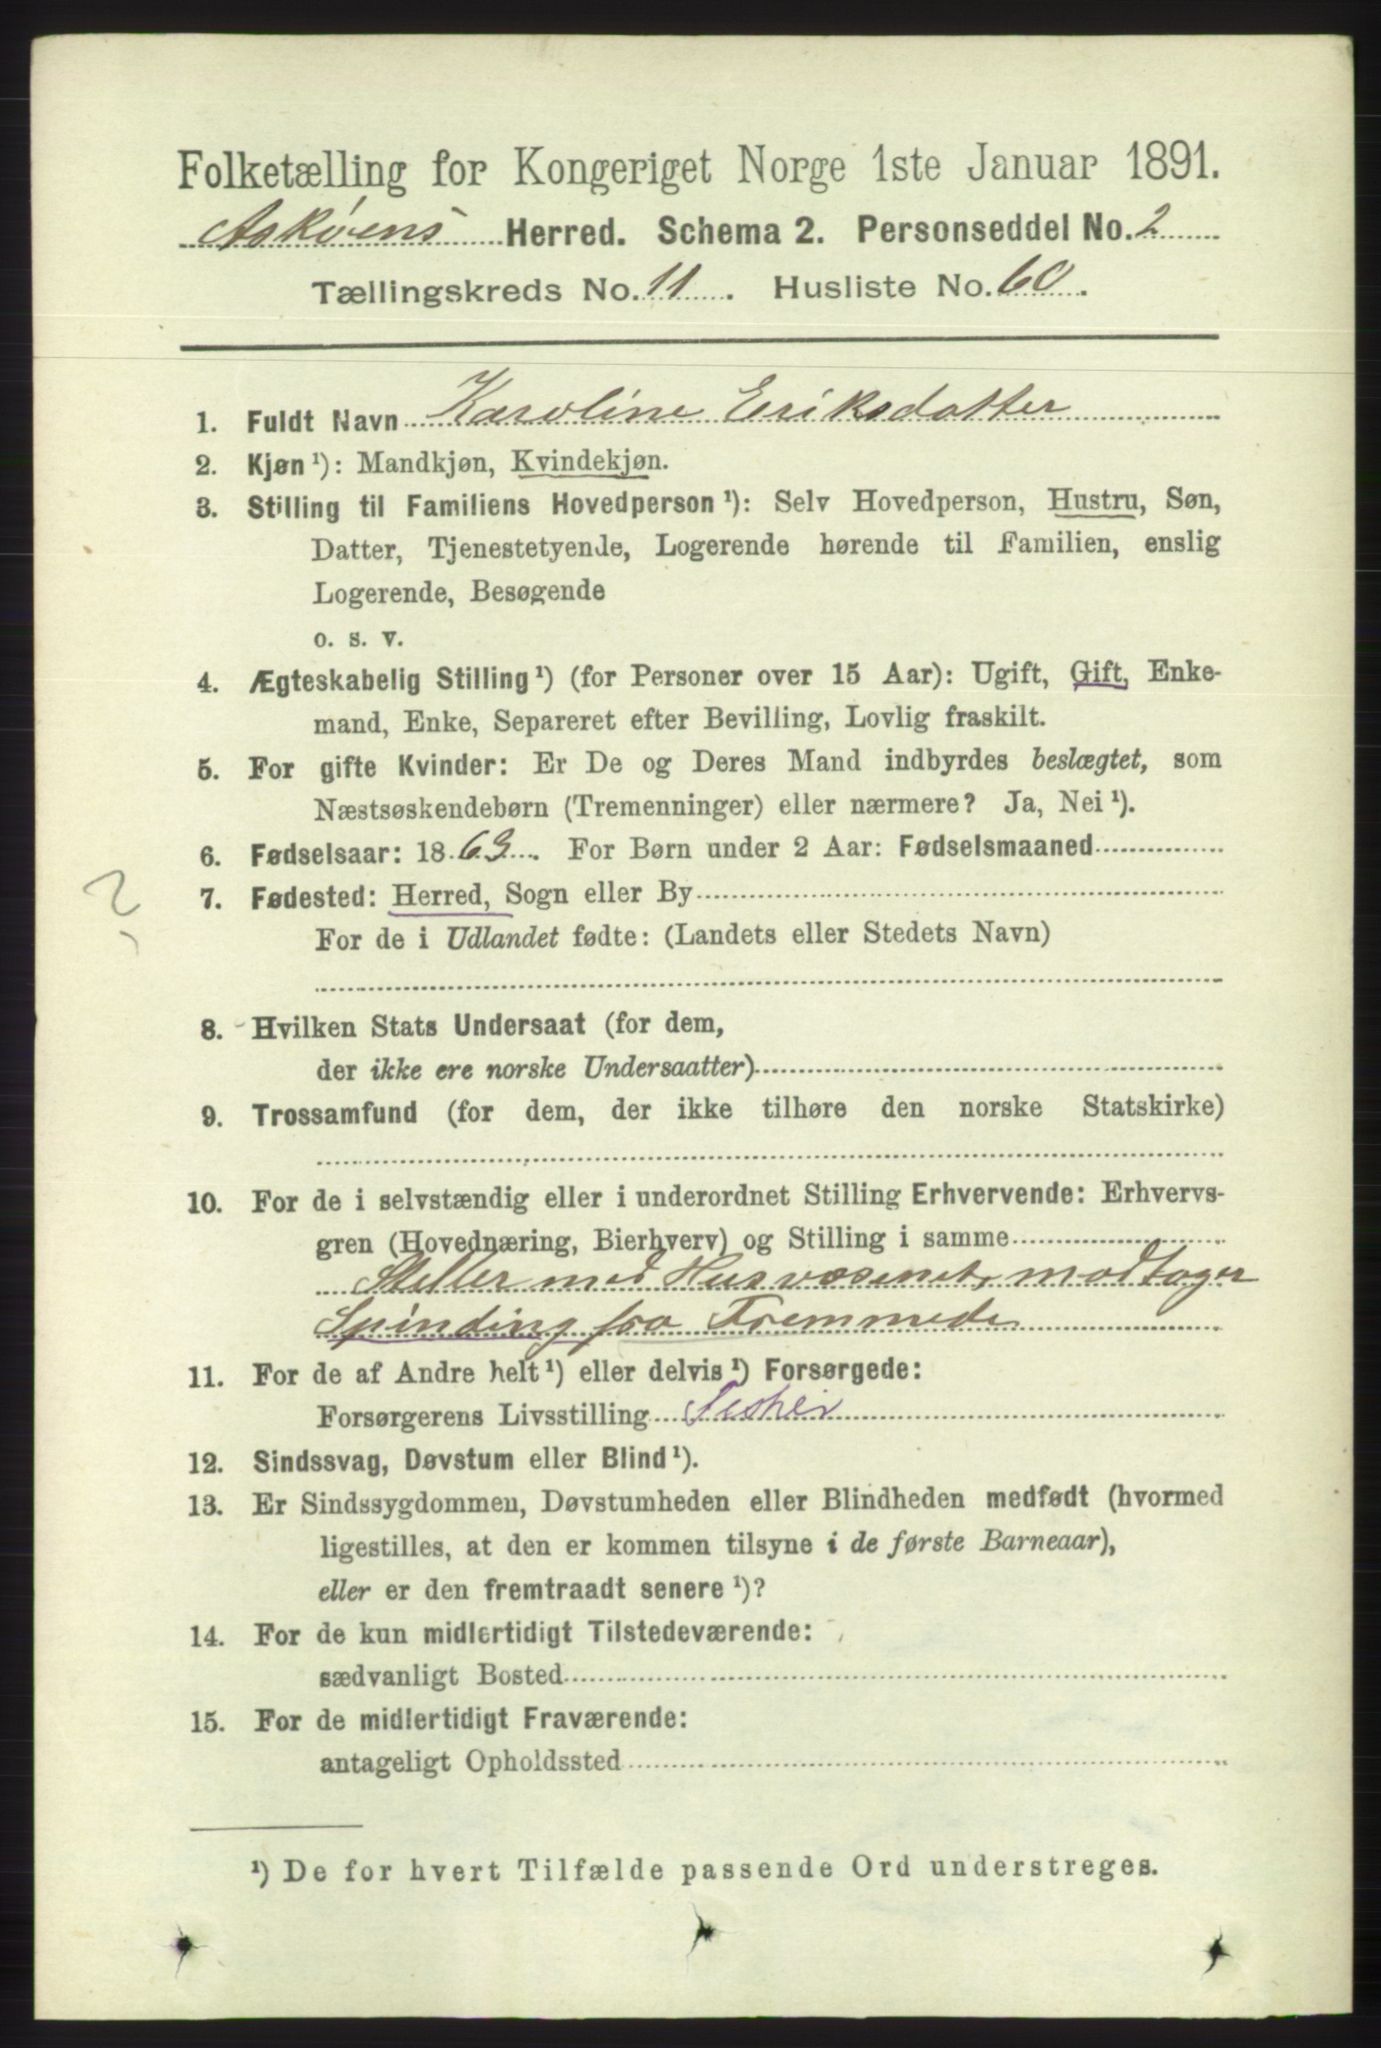 Folketælling for Kongeriget Norge 1ste Januar 1891.
Askøens Herred. Schema 2. Personseddel No. 2
Tællingskreds No. 11. Husliste No. 60.
1. Fuldt Navn Karoline Eriksdatter
2. Kjøn ¹): Mandkjøn, Kvindekjøn.
3. Stilling til Familiens Hovedperson ¹): Selv Hovedperson, Hustru, Søn,
Datter, Tjenestetyende, Logerende hørende til Familien, enslig
Logerende, Besøgende
o. s. v.
4. Ægteskabelig Stilling ¹) (for Personer over 15 Aar): Ugift, Gift, Enke-
mand, Enke, Separeret efter Bevilling, Lovlig fraskilt.
5. For gifte Kvinder: Er De og Deres Mand indbyrdes beslægtet, som
Næstsøskendebørn (Tremenninger) eller nærmere? Ja, Nei ¹).
6. Fødselsaar: 1863. For Børn under 2 Aar: Fødselsmaaned
?
7. Fødested: Herred, Sogn eller By
For de i Udlandet fødte: (Landets eller Stedets Navn)
8. Hvilken Stats Undersaat (for dem,
der ikke ere norske Undersaatter)
9. Trossamfund (for dem, der ikke tilhøre den norske Statskirke)
10. For de i selvstændig eller i underordnet Stilling Erhvervende: Erhvervs-
gren (Hovednæring, Bierhverv) og Stilling i samme
Steller med Husvæsenet, modtager
Spinding fra Fremmede
11. For de af Andre helt ¹) eller delvis ¹) Forsørgede:
Forsørgerens Livsstilling Fisker
12. Sindssvag, Døvstum eller Blind ¹).
13. Er Sindssygdommen, Døvstumheden eller Blindheden medfødt (hvormed
ligestilles, at den er kommen tilsyne i de første Barneaar),
eller er den fremtraadt senere ¹)?
14. For de kun midlertidigt Tilstedeværende:
sædvanligt Bosted
15. For de midlertidigt Fraværende:
antageligt Opholdssted
¹) De for hvert Tilfælde passende Ord understreges.